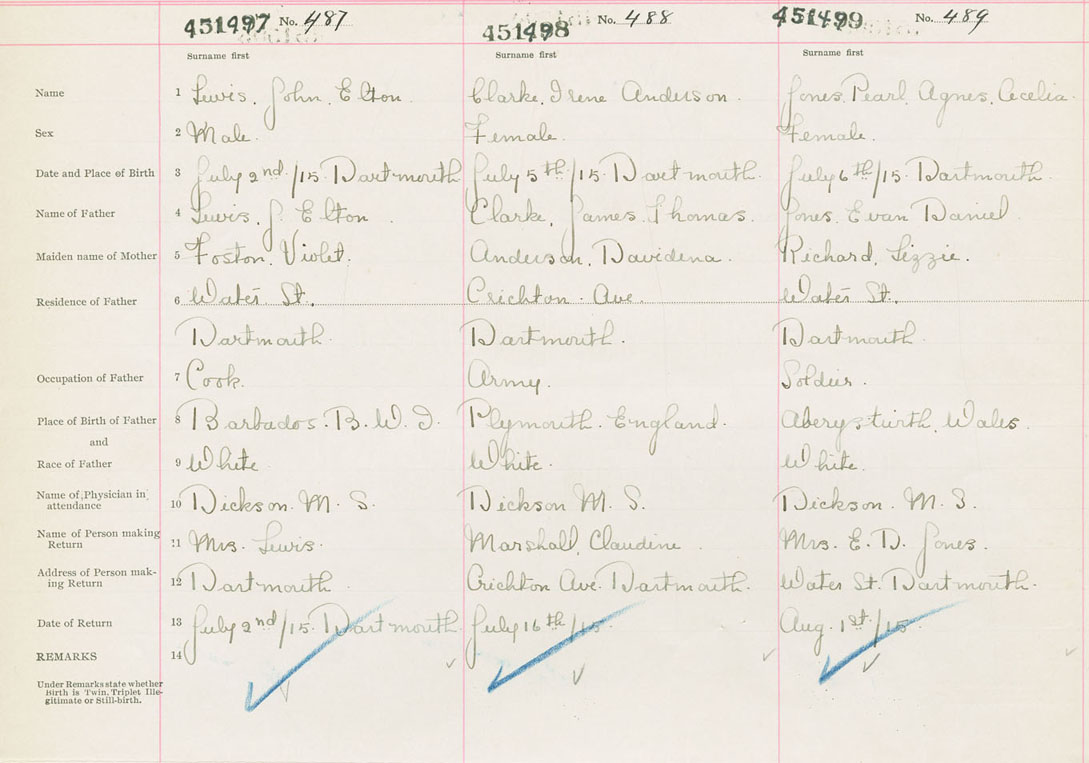 451497 No. 487 451498 No. 488 451499 No. 489
Surname first Surname first Surname first
Name 1 Lewis, John, Elton. Clarke, Irene Anderson. Jones, Pearl, Agnes, Cecelia.
Sex 2 Male. Female. Female.
Date and Place of Birth 3 July 2nd/15. Dartmouth July 5th/15. Dartmouth. July 6th/15. Dartmouth.
Name of Father 4 Lewis, J. Elton. Clarke, James Thomas. Jones, Evan Daniel.
Maiden name of Mother 5 Foston, Violet. Anderson, Davidena. Richard, Lizzie.
Residence of Father 6 Water St. Crichton Ave. Water St.
Dartmouth. Dartmouth. Dartmouth.
Occupation of Father 7 Cook. Army. Soldier.
Place of Birth of Father 8 Barbados. B. W. I. Plymouth. England. Aberysturth, Wales.
and
Race of Father 9 White. White. White.
Name of Physician in
attendance 10 Dickson. M. S. Dickson M. S. Dickson. M. S.
Name of Person making
Return 11 Mrs. Lewis. Marshall, Claudine. Mrs. E. D. Jones.
Address of Person mak-
ing Return 12 Dartmouth. Crichton Ave. Dartmouth. Water St. Dartmouth.
Date of Return 13 July 2nd/15. Dartmouth. July 16th/15. Aug. 1st/15.
REMARKS 14
Under Remarks state whether
Birth is Twin, Triplet Ille-
gitimate or Still-birth.